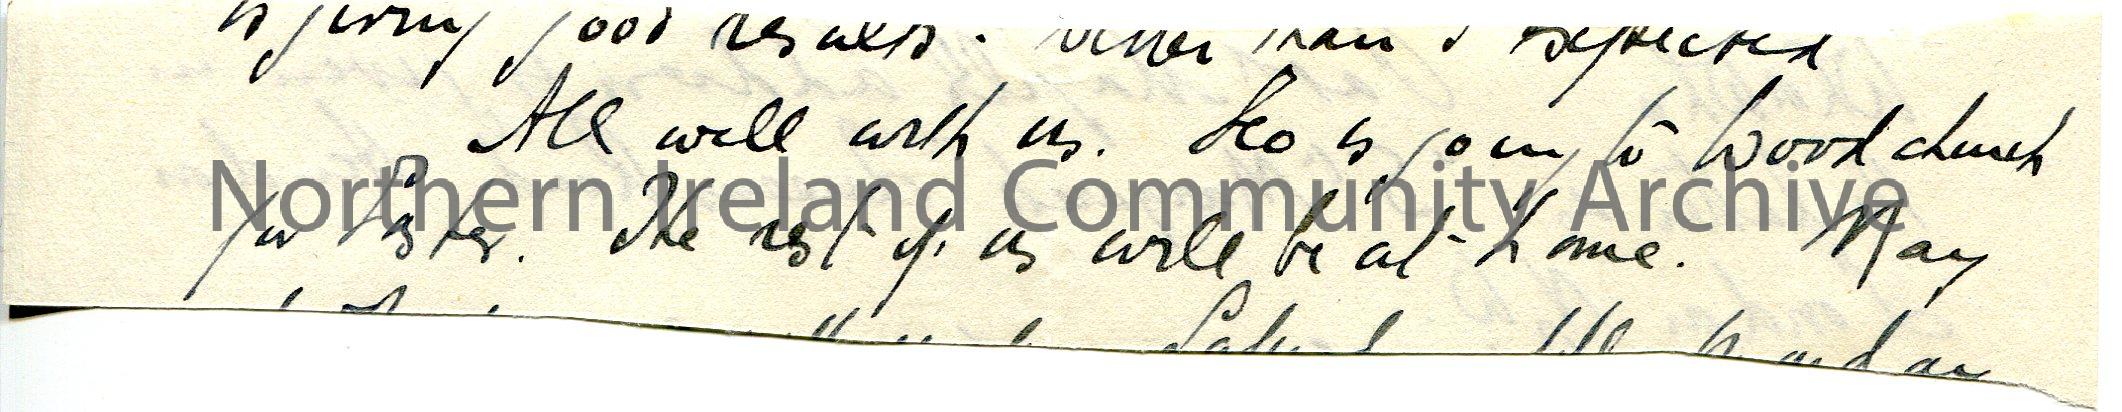 is giving good results. better than I expected
All well with us. Leo is going to Woodchurch
Northern Ireland Community Archive
for Easter. The rest of us will be at home. May